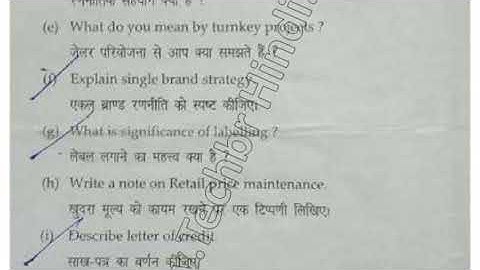 रणनीतिक सहयोग क्या है ?
(e) What do you mean by turnkey projects ?
जेलर परियोजना से आप क्या समझते हैं ?
(f) Explain single brand strategy.
एकल ब्राण्ड रणनीति को स्पष्ट कीजिए।
(g) What is significance of labelling ?
लेबल लगाने का महत्त्व क्या है ?
(h) Write a note on Retail price maintenance.
खुदरा मूल्य को कायम रखने पर एक टिप्पणी लिखिए।
(i) Describe letter of credit.
साख-पत्र का वर्णन कीजिए।
Techbr Hindi